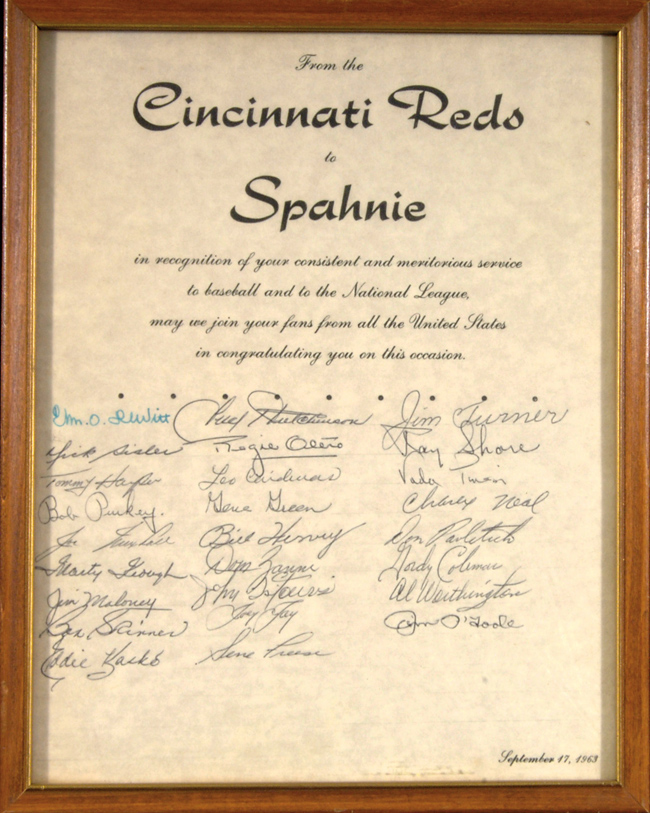 From the
Cincinnati Reds
to
Spahnie
in recognition of your consistent and meritorious service
to baseball and to the National League,
may we join your fans from all the United States
in congratulating you on this occasion.
Wm. O. DeWitt Fred Hutchinson Jim Turner
Dick Sisler Regie Otero Ray Shore
Tommy Harper Leo Cardenas Vada Pinson
Bob Purkey. Gene Green Charley Neal
Bill Henry Don Pavletich
Marty Keough Dom Zanni Gordy Coleman
Jim Maloney Al Worthington
Bob Skinner Joey Jay Jim O'Toole
Eddie Kasko Gene Freese
September 17, 1963